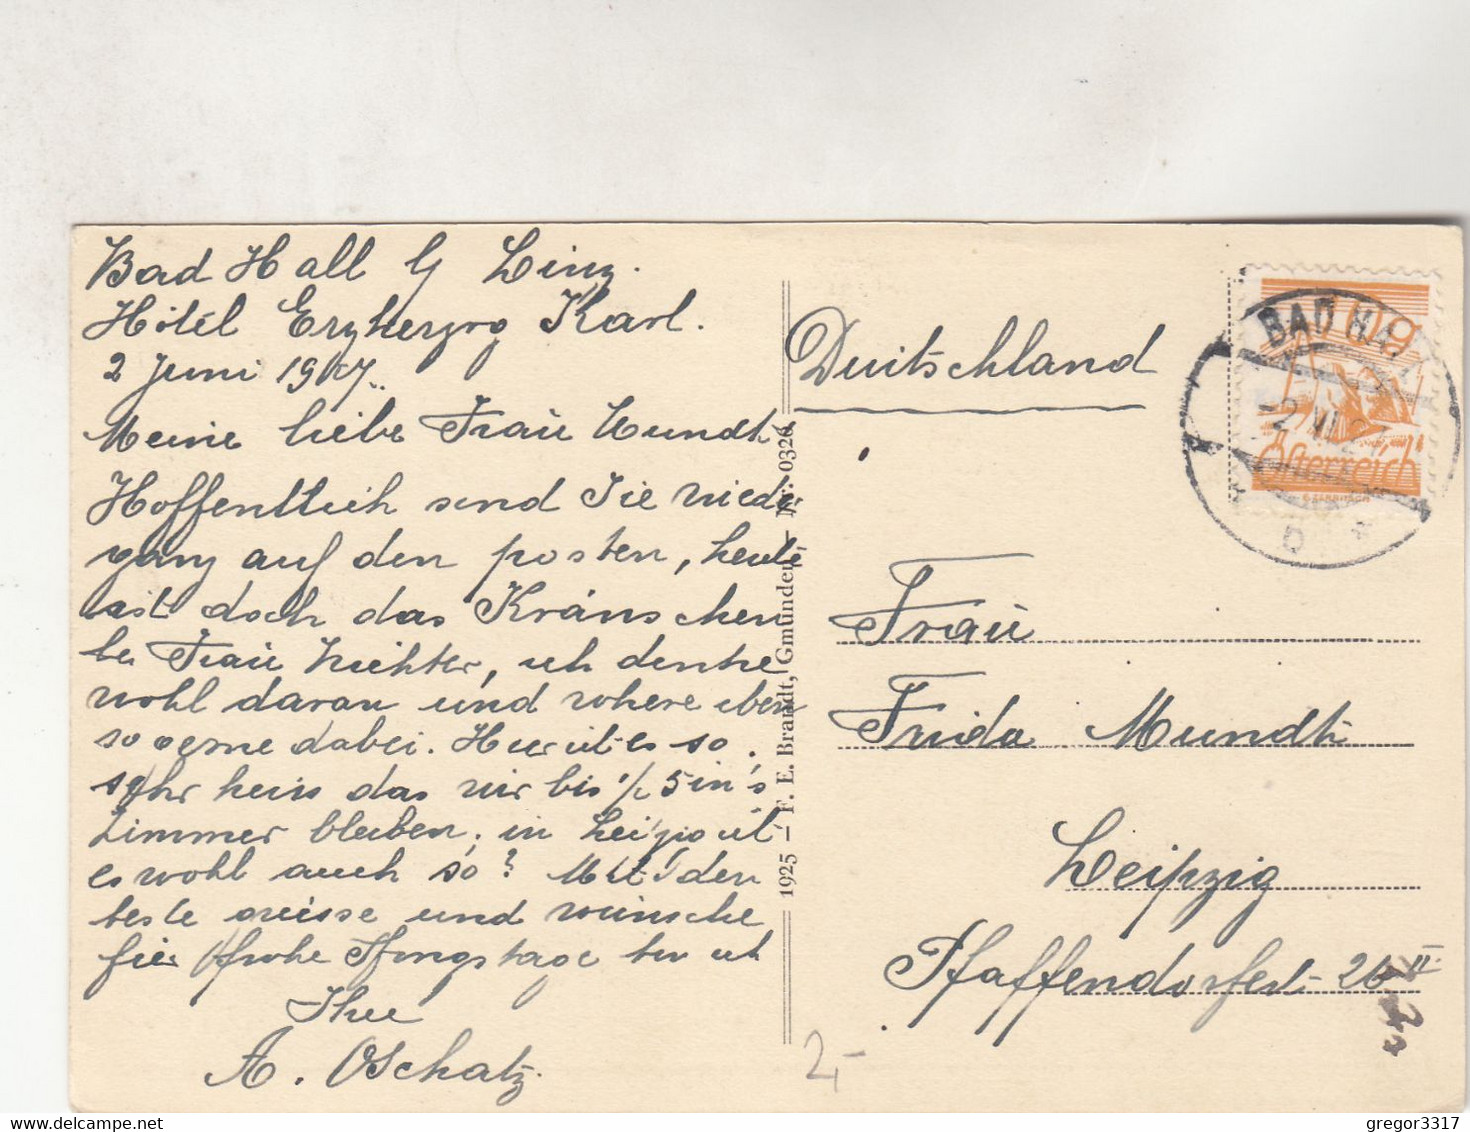 Bad Hall b/ Linz.
Hôtél Erzherzog Karl.
2 Juni 1927.
Meine liebe Fraü Mundt
Hoffentlich sind Sie wieder
ganz auf den posten, heute
ist doch das Kränschen
bei Fraü Richter, ich denke
wohl daran und wäre eben
so gerne dabei. Hier ist es so
sehr heiss das wir bis 1/2 5 in's
Zimmer bleiben, in Leipzig ist
es wohl auch so? Mit den
beste grüsse und wünsche
für frohe Pfingstage bin ich
Ihre
A. Oschatz.
1925 – F. E. Brandt, Gmunden – Nr. 0326
Deutschland
BAD HALL
2.VI.27
Österreich
10 g
Fraü
Frida Mundt
Leipzig
Pfaffendorferst. 26 II
2,-
gregor3317